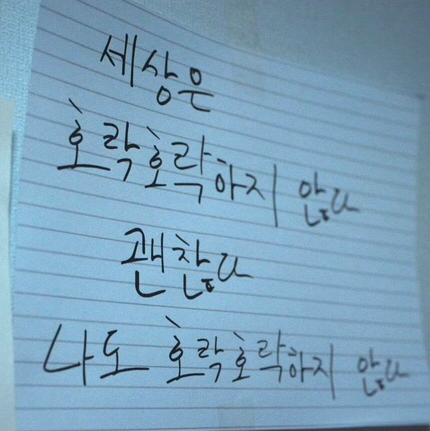 세상은
호락호락하지 않다
괜찮다
나도 호락호락하지 않다